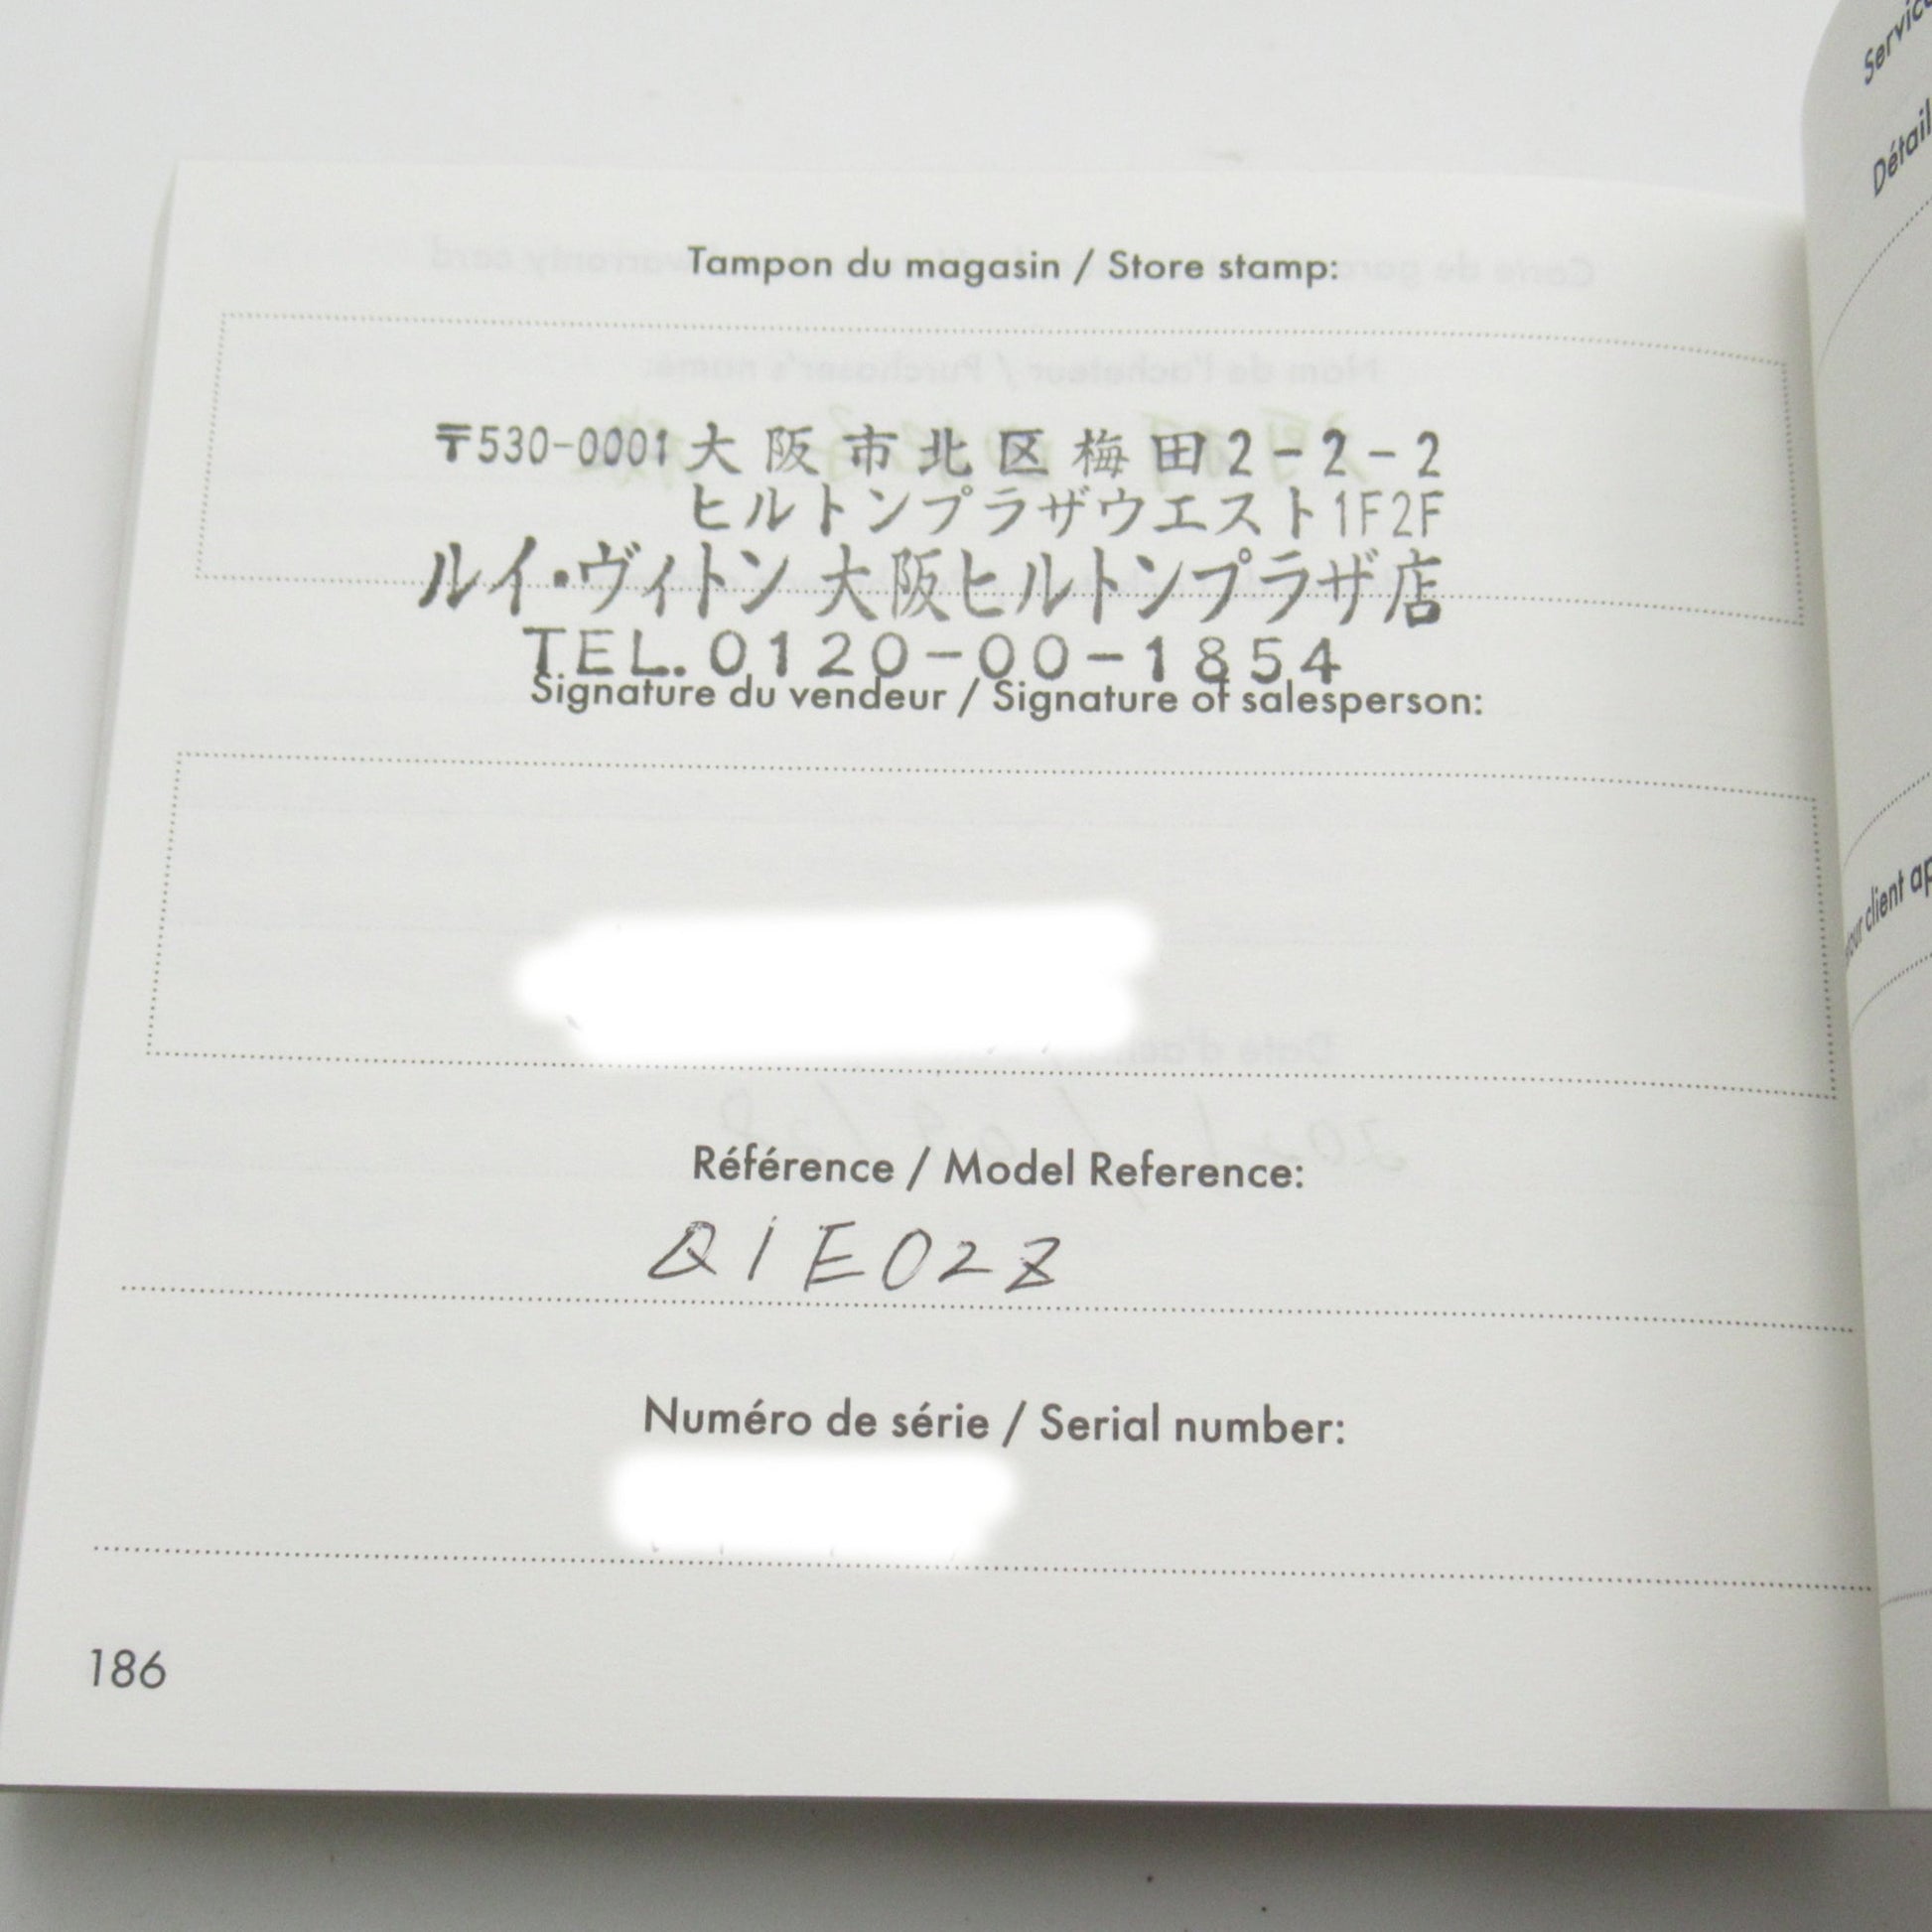 Tampon du magasin / Store stamp:
〒530-0001 大阪市北区梅田2-2-2
ヒルトンプラザウエスト1F2F
ルイ・ヴィトン 大阪ヒルトンプラザ店
TEL. 0120-00-1854
Signature du vendeur / Signature of salesperson:
Référence / Model Reference:
Q1E02Z
Numéro de série / Serial number:
186
Service
Détail
client